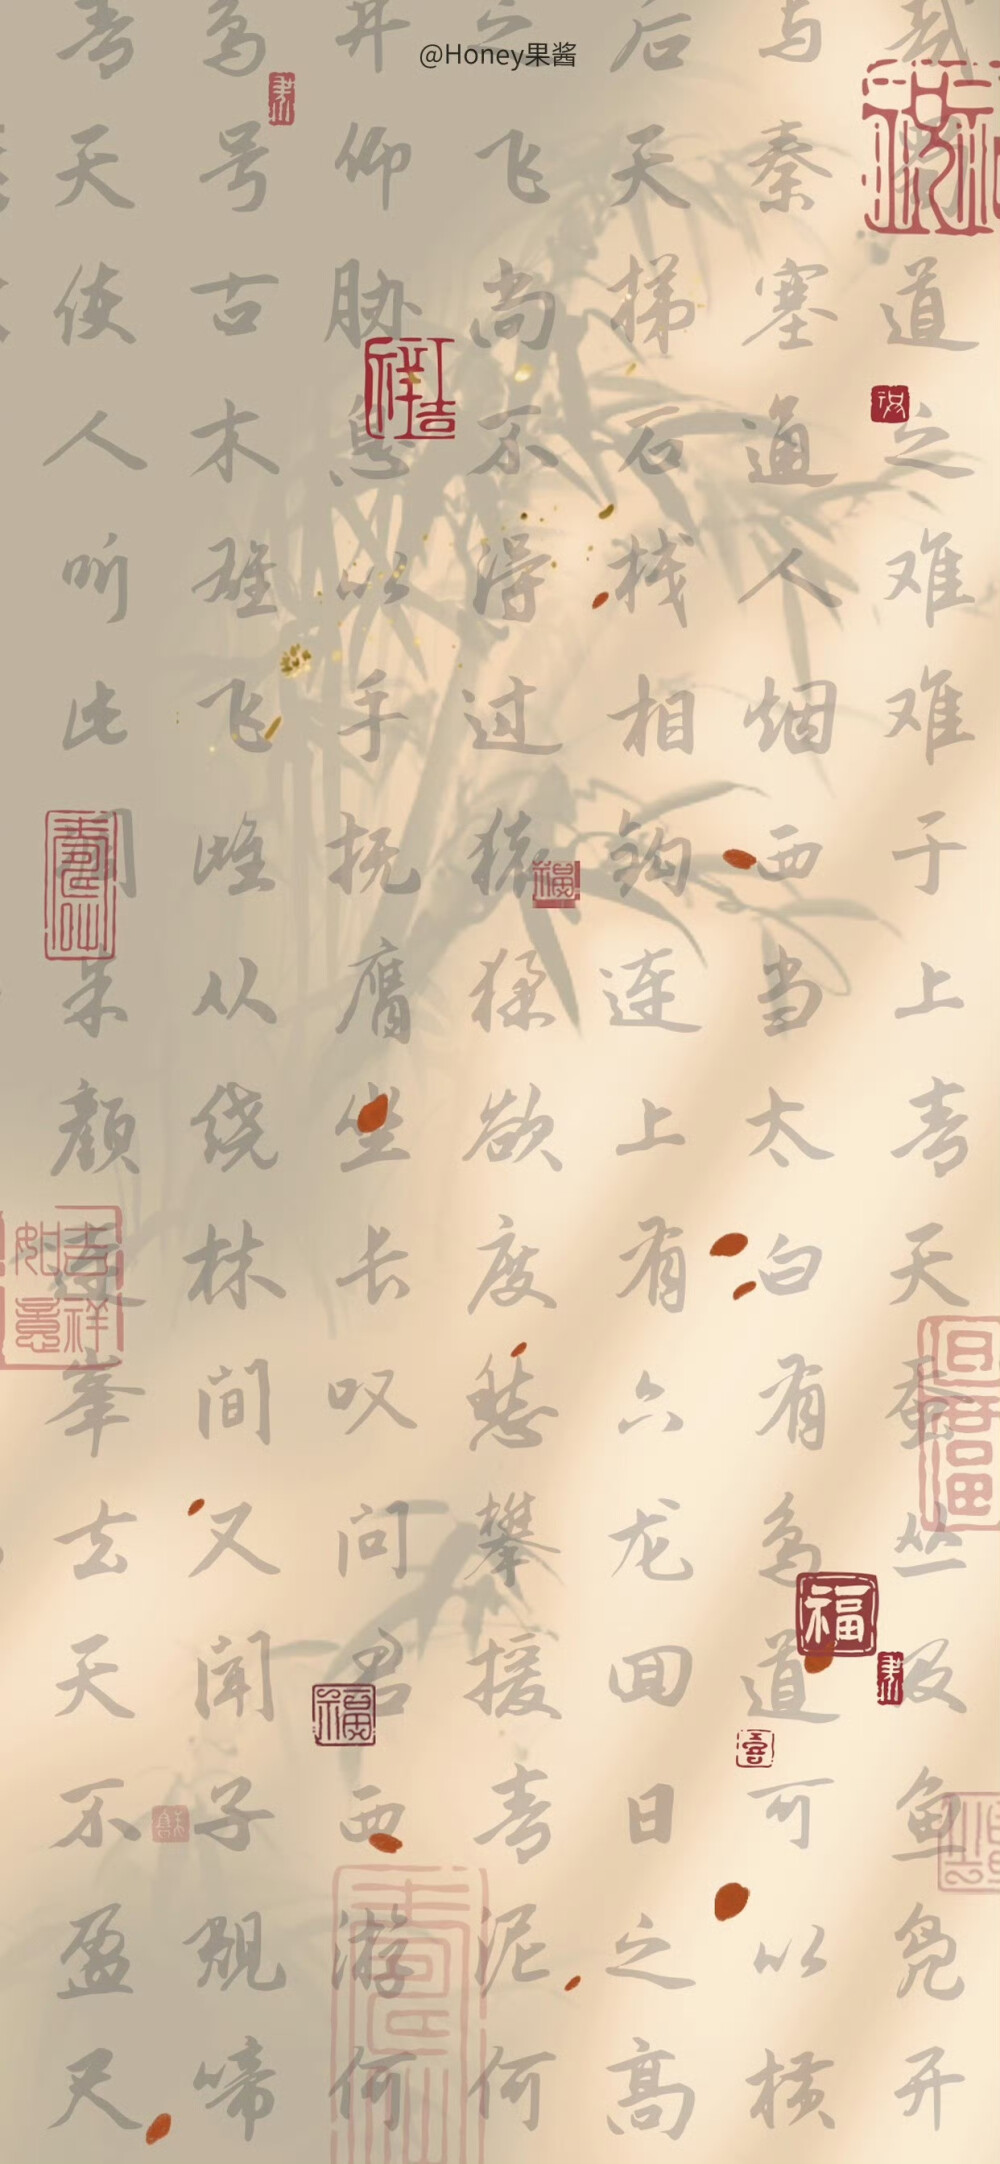 @Honey果酱
哉蜀道之难难于上青天蚕丛及鱼凫开
与秦塞通人烟西当太白有鸟道可以横
后天梯石栈相钩连上有六龙回日之高
之飞尚不得过猿猱欲度愁攀援青泥何
井仰胁息以手抚膺坐长叹问君西游何
鸟号古木雄飞雌从绕林间又闻子规啼
青天使人听此凋朱颜连峰去天不盈尺
吉祥如意
福
福
福
喜